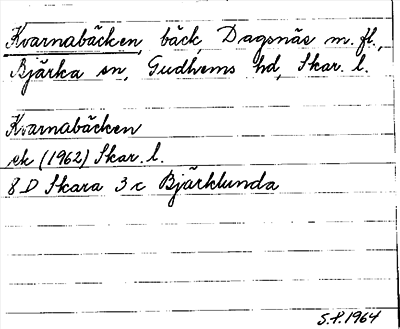 Kvarnabäcken, bäck, Dagsnäs m. fl.,
Bjärka sn, Gudhems hd, Skar. l.
Kvarnabäcken
ek (1962) Skar. l.
8 D Skara 3 c Bjärklunda
S.P. 1964